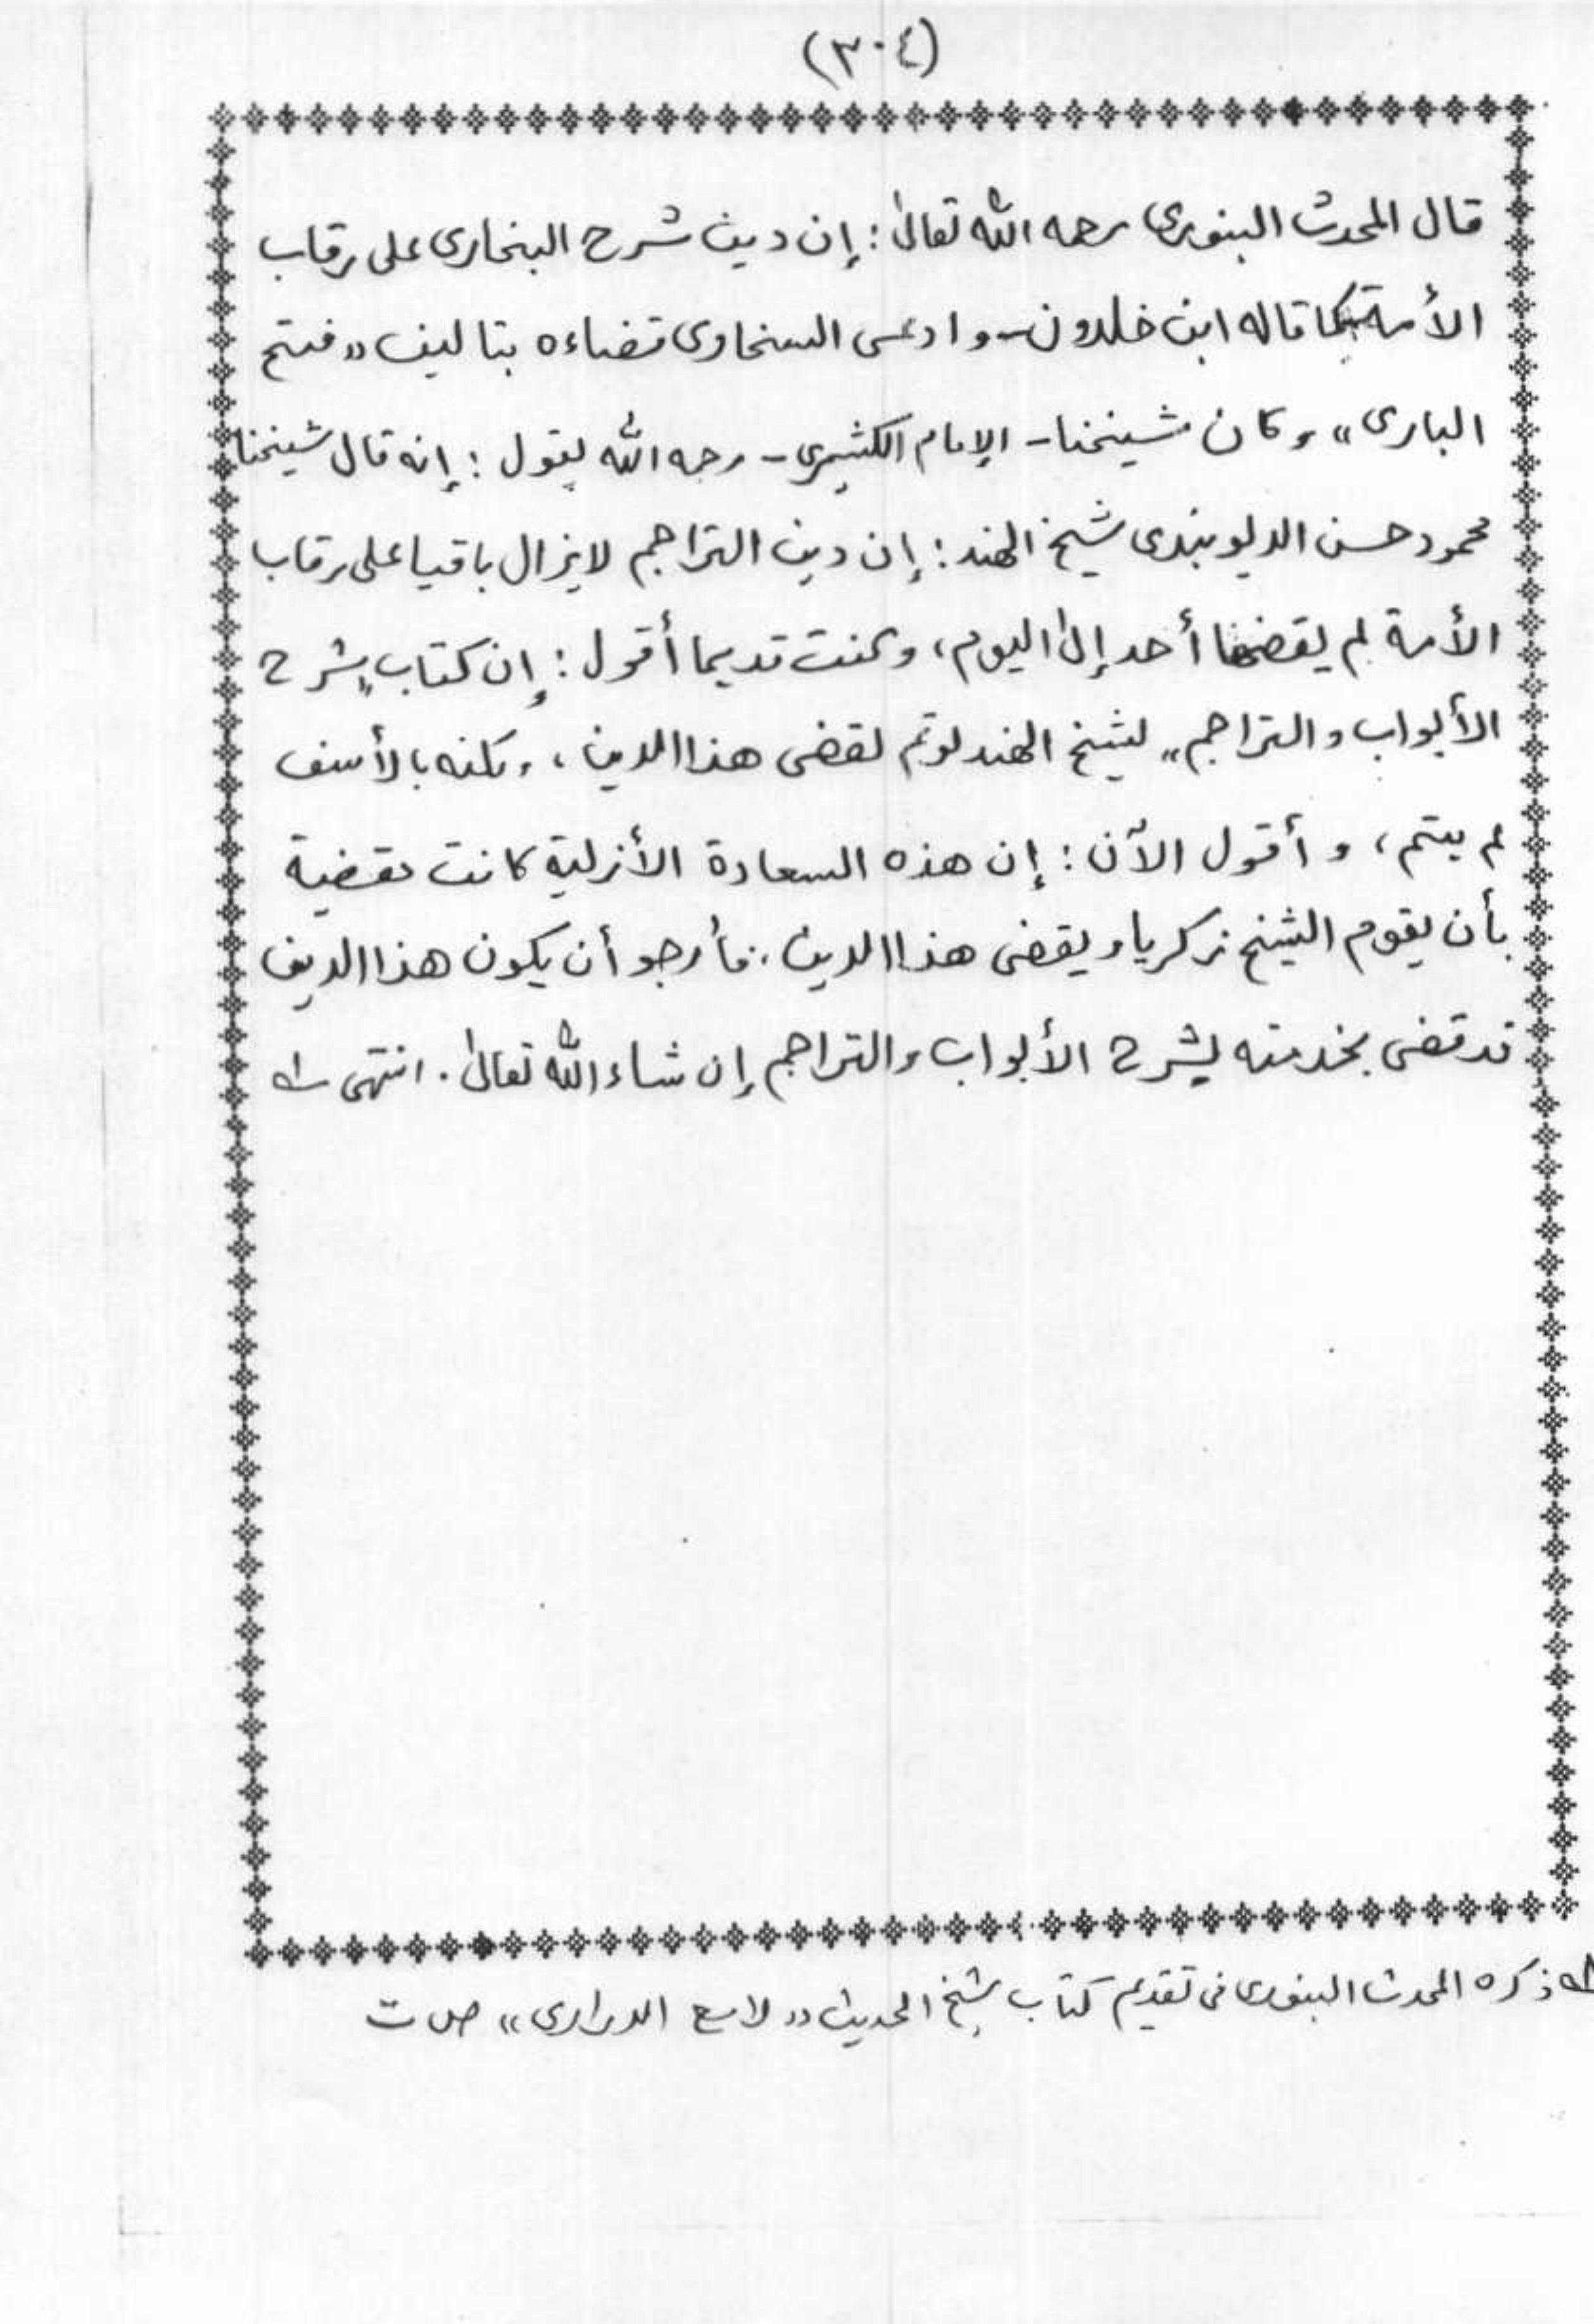 (٣٠٤)
قال المحدث البنوري رحمه الله تعالىٰ: إن دين شرح البخارى على رقاب
الأمة كما قاله ابن خلدون - وادعى السخاوى قضاءه بتاليف «فتح
البارى» وكان شيخنا - الإمام الكشميرى - رحمه الله يقول: إنه قال شيخنا
محمود حسن الديوبندى شيخ الهند: إن دين التراجم لايزال باقيا على رقاب
الأمة لم يقضها أحد إلىٰ اليوم، وكنت قديما أقول: إن كتاب «شرح
الأبواب والتراجم» لشيخ الهند لوتم لقضى هذا الدين، ولكنه بالأسف
لم يتم، وأقول الآن: إن هذه السعادة الأزلية كانت مقضية
بأن يقوم الشيخ زكريا ويقضى هذا الدين، فأرجو أن يكون هذا الدين
قد قضى بخدمته بشرح الأبواب والتراجم إن شاء الله تعالىٰ. انتهى
ذكره المحدث البنورى فى تقديم كتاب شيخ الحديث «لامع الدرارى» ص ت